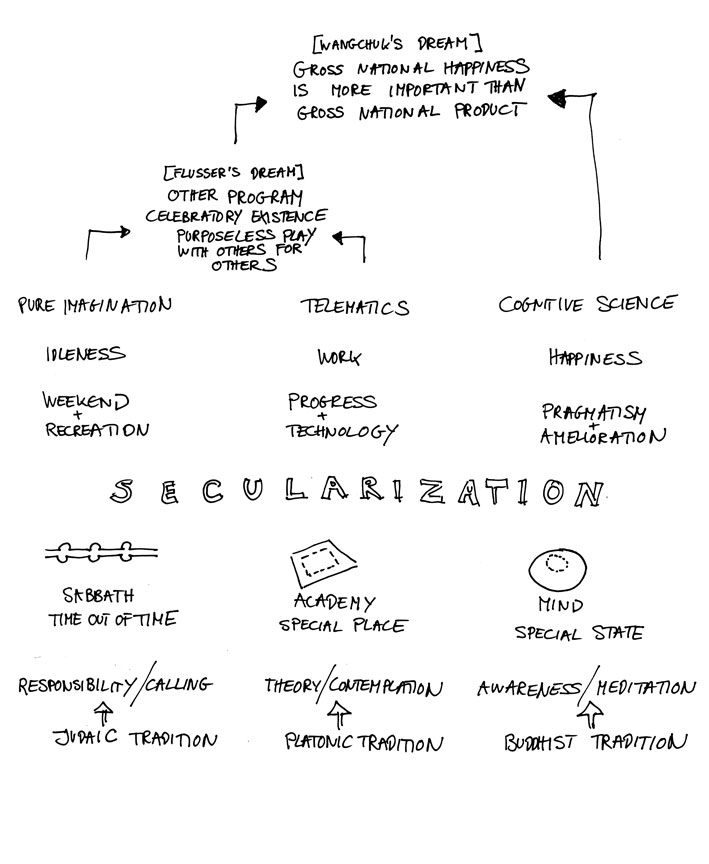 [WANGCHUK'S DREAM]
GROSS NATIONAL HAPPINESS
IS MORE IMPORTANT THAN
GROSS NATIONAL PRODUCT
[FLUSSER'S DREAM]
OTHER PROGRAM
CELEBRATORY EXISTENCE
PURPOSELESS PLAY
WITH OTHERS FOR
OTHERS
PURE IMAGINATION
TELEMATICS
COGNITIVE SCIENCE
IDLENESS
WORK
HAPPINESS
WEEKEND
+
RECREATION
PROGRESS
+
TECHNOLOGY
PRAGMATISM
+
AMELIORATION
SECULARIZATION
SABBATH
TIME OUT OF TIME
ACADEMY
SPECIAL PLACE
MIND
SPECIAL STATE
RESPONSIBILITY/CALLING
THEORY/CONTEMPLATION
AWARENESS/MEDITATION
JUDAIC TRADITION
PLATONIC TRADITION
BUDDHIST TRADITION